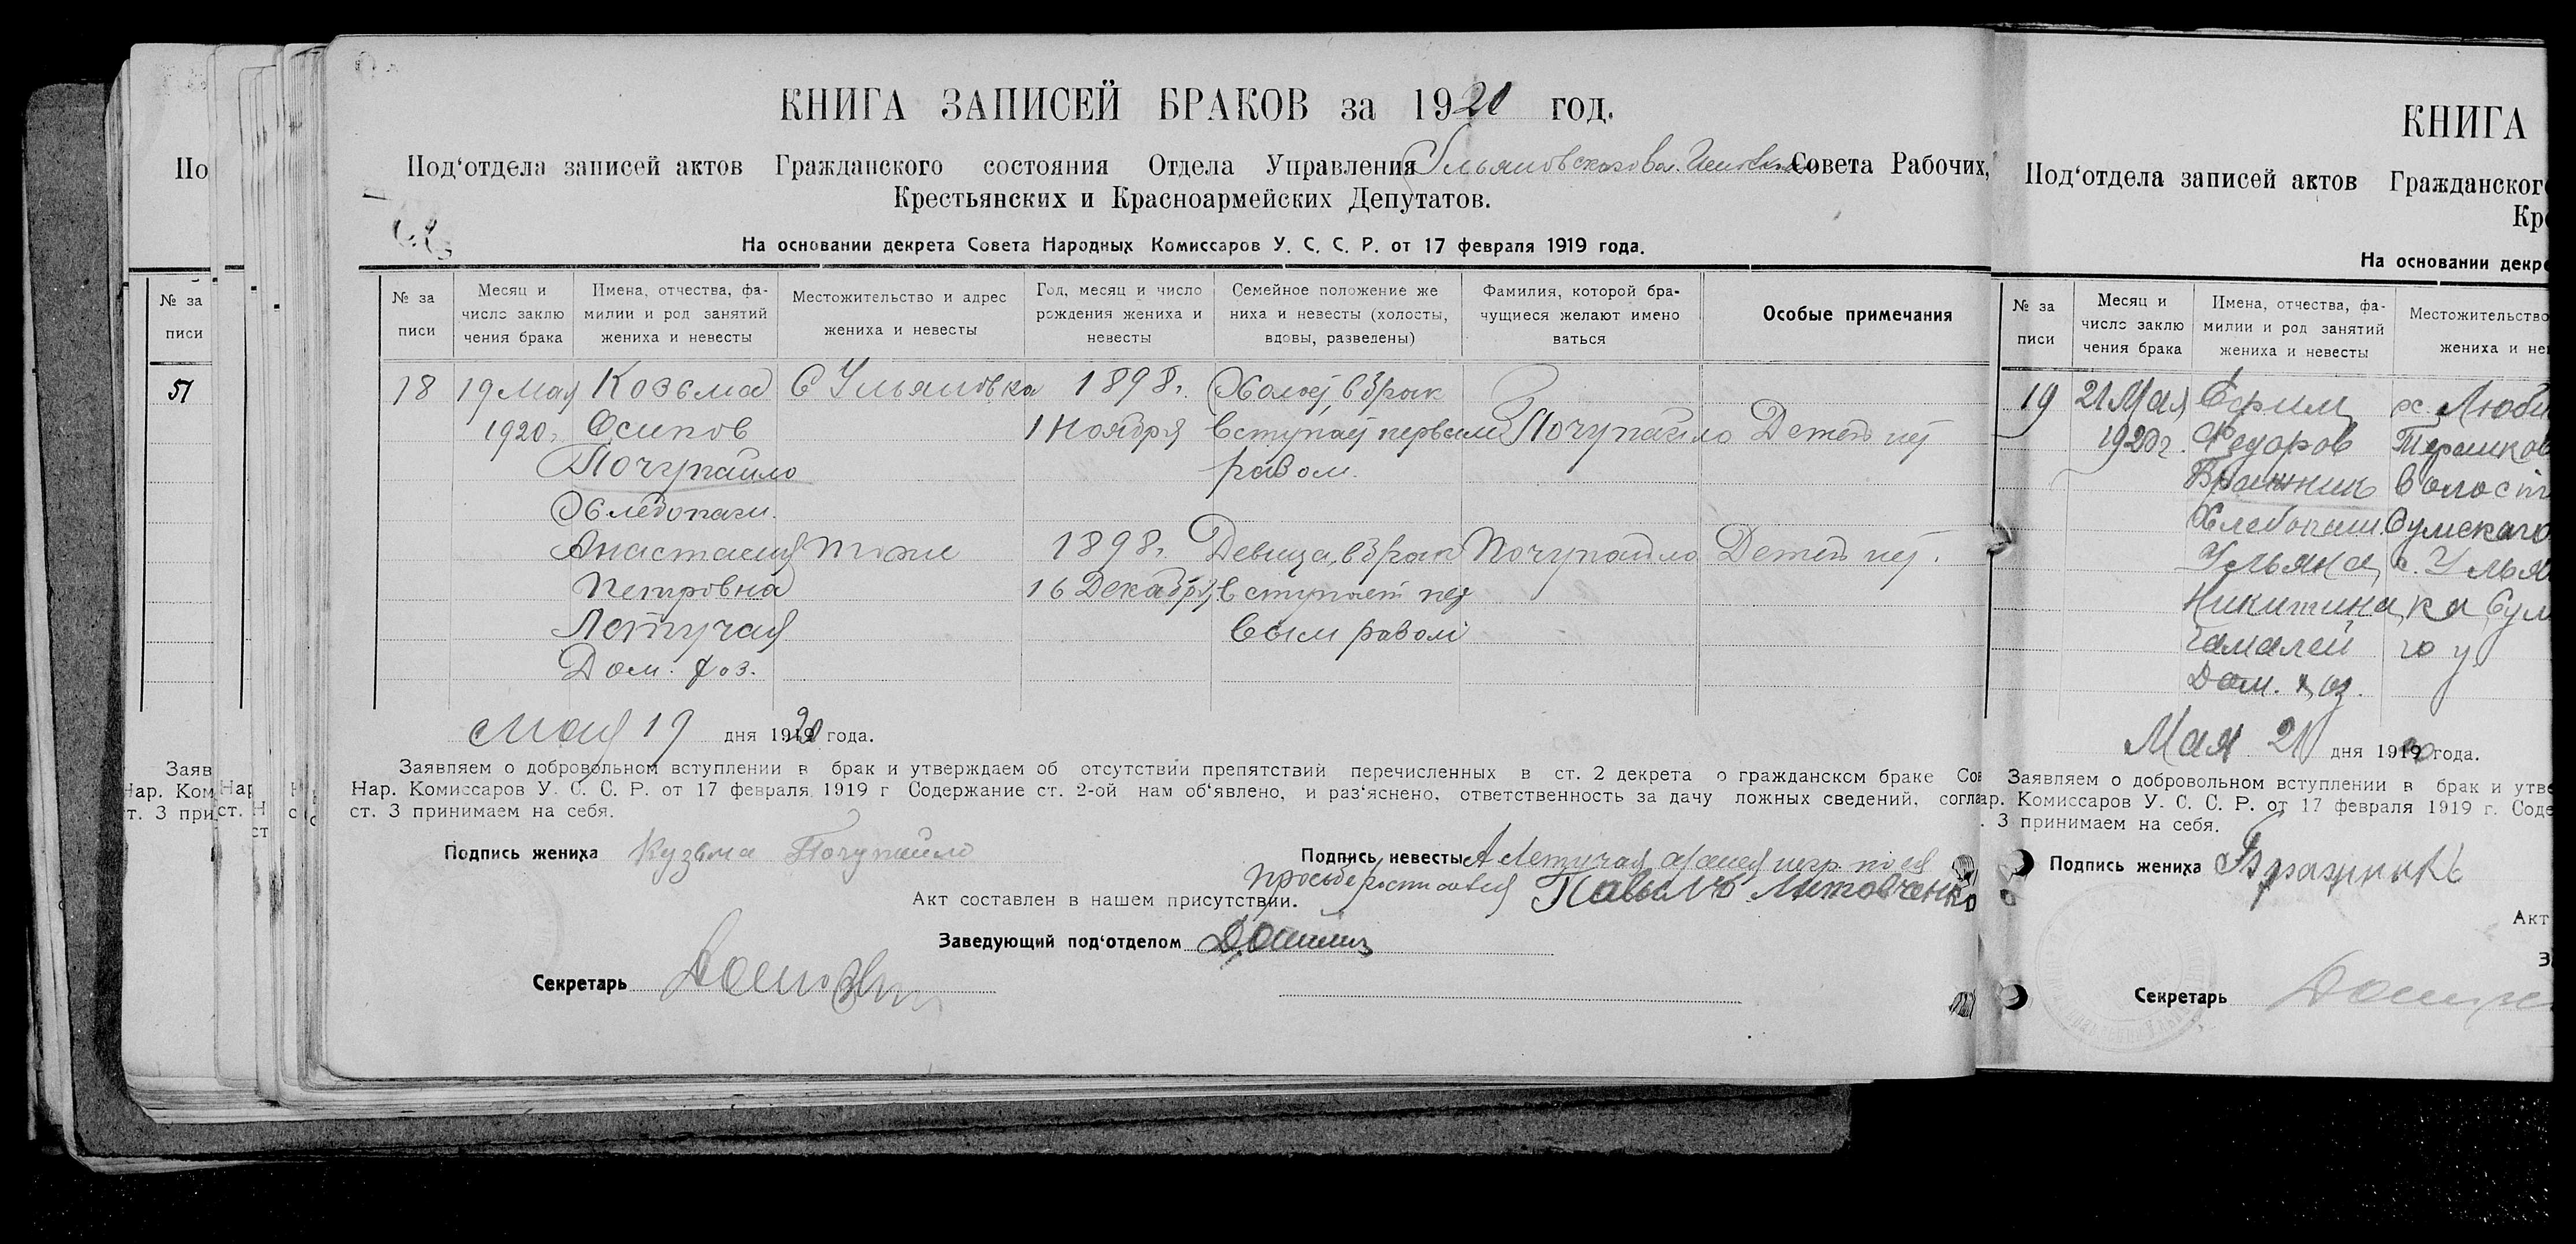 КНИГА ЗАПИСЕЙ БРАКОВ за 1920 год.
Под‘отдела записей актов Гражданского состояния Отдела Управления Ульяновского Вол. Совета Рабочих,
Крестьянских и Красноармейских Депутатов.
На основании декрета Совета Народных Комиссаров У. С. С. Р. от 17 февраля 1919 года.
№ за писи
Месяц и число заклю чения брака
Имена, отчества, фа- милии и род занятий жениха и невесты
Местожительство и адрес жениха и невесты
Год, месяц и число рождения жениха и невесты
Семейное положение же ниха и невесты (холосты, вдовы, разведены)
Фамилия, которой бра- чущиеся желают имено ваться
Особые примечания
18 19 Мая Козьма С Ульяновка 1898 г. Холост, в брак
1920 г. Осипов 1 Ноября вступает первым Почупайло Детей нет
Почупайло разом.
Хлебопаш.
Анастасия тоже 1898 г. Девица, в брак Почупайло Детей нет.
Петровна 16 Декабря вступает пер
Летучая вым разом
Дом. хоз.
Мая 19 дня 1920 года.
Заявляем о добровольном вступлении в брак и утверждаем об отсутствии препятствий перечисленных в ст. 2 декрета о гражданском браке Сов
Нар. Комиссаров У. С. С. Р. от 17 февраля 1919 г Содержание ст. 2-ой нам об‘явлено, и раз‘яснено, ответственность за дачу ложных сведений, согла
ст. 3 принимаем на себя.
Подпись жениха Кузьма Почупайло
Подпись невесты А Летучая по ея
просьбе росписался Павелъ Литовченко
Акт составлен в нашем присутствии.
Заведующий под‘отделом
Секретарь
По
№ за писи
51
Заяв
Нар. Ком
т. 3 при
Нар
ст.
КНИГА
Под‘отдела записей актов Гражданског
Кре
На основании декре
№ за писи
Месяц и число заклю чения брака
Имена, отчества, фа- милии и род занятий жениха и невесты
Местожительство жениха и не
19 21 Мая Ефим х. Люби
1920 г. Федоров
Бражник волости
Хлебопаш. Сумского
Ульяна с. Улья
Никитина ка Сум
Гамалей го у
Дом. хоз.
Мая 21 дня 1920 года.
Заявляем о добровольном вступлении в брак и утве
ар. Комиссаров У. С. С. Р. от 17 февраля 1919 г. Соде
. 3 принимаем на себя.
Подпись жениха Бражникъ
Акт
З
Секретарь